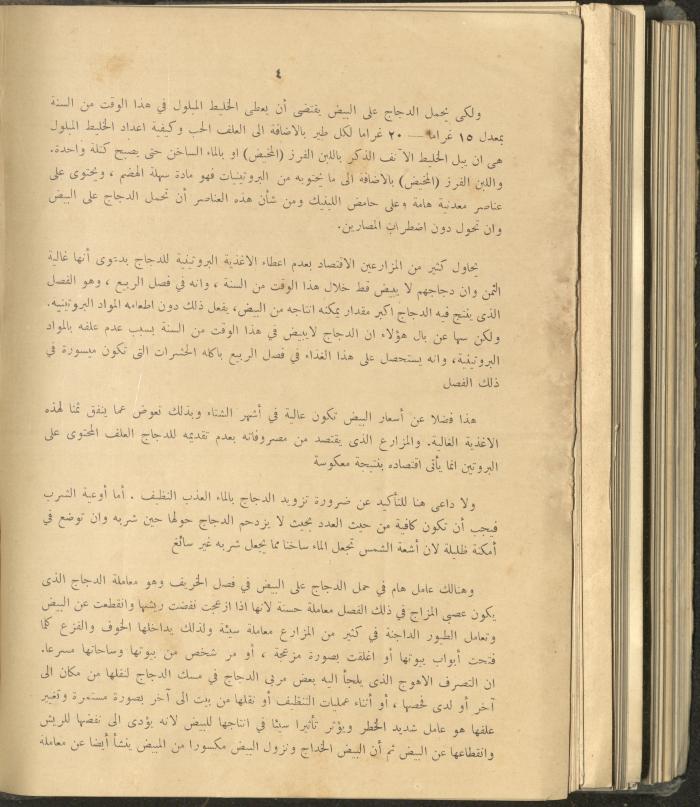 ٤
ولكى يحمل الدجاج على البيض يقتضى أن يعطى الخليط المبلول في هذا الوقت من السنة
بمعدل ١٥ غراما — ٢٠ غراما لكل طير بالاضافة الى العلف الحب وكيفية اعداد الخليط المبلول
هى ان يبل الخليط الآنف الذكر باللبن الفرز (المخيض) او بالماء الساخن حتى يصبح كتلة واحدة.
واللبن الفرز (المخيض) بالاضافة الى ما يحتويه من البروتينات فهو مادة سهلة الهضم ، ويحتوى على
عناصر معدنية هامة وعلى حامض اللبنيك ومن شأن هذه العناصر أن تحمل الدجاج على البيض
وان تحول دون اضطراب المصارين.
يحاول كثير من المزارعين الاقتصاد بعدم اعطاء الاغذية البروتينية للدجاج بدعوى أنها غالية
الثمن وان دجاجهم لا يبيض قط خلال هذا الوقت من السنة ، وانه في فصل الربيع ، وهو الفصل
الذى ينتج فيه الدجاج اكبر مقدار يمكنه انتاجه من البيض، يفعل ذلك دون اطعامه المواد البروتينيه.
ولكن سها عن بال هؤلاء ان الدجاج لايبيض في هذا الوقت من السنة بسبب عدم علفه بالمواد
البروتينية، وانه يستحصل على هذا الغذاء في فصل الربيع باكله الحشرات التى تكون ميسورة في
ذلك الفصل
هذا فضلا عن أسعار البيض تكون عالية في أشهر الشتاء وبذلك تعوض عما ينفق ثمنا لهذه
الاغذية الغالية. والمزارع الذى يقتصد من مصروفاته بعدم تقديمه للدجاج العلف المحتوى على
البروتين انما يأتى اقتصاده بنتيجة معكوسة
ولا داعى هنا للتأكيد عن ضرورة تزويد الدجاج بالماء العذب النظيف . أما أوعية الشرب
فيجب أن تكون كافية من حيث العدد بحيث لا يزدحم الدجاج حولها حين شربه وان توضع في
أمكنة ظليلة لان أشعة الشمس تجعل الماء ساخنا مما يجعل شربه غير سائغ
وهنالك عامل هام في حمل الدجاج على البيض في فصل الخريف وهو معاملة الدجاج الذى
يكون عصبى المزاج في ذلك الفصل معاملة حسنة لانها اذا ازعجت نفضت ريشها وانقطعت عن البيض
وتعامل الطيور الداجنة في كثير من المزارع معاملة سيئة ولذلك يداخلها الخوف والفزع كلما
فتحت أبواب بيوتها أو اغلقت بصورة مزعجة ، أو مر شخص من بيوتها وساحاتها مسرعا.
ان التصرف الاهوج الذى يلجأ اليه بعض مربى الدجاج في مسك الدجاج لنقلها من مكان الى
آخر أو لدى فحصها ، أو أثناء عمليات التنظيف أو نقلها من بيت الى آخر بصورة مستمرة وتغيير
علفها هو عامل شديد الخطر ويؤثر تأثيرا سيئا في انتاجها للبيض لانه يؤدى الى نفضها للريش
وانقطاعها عن البيض ثم أن البيض الخداج ونزول البيض مكسورا من المبيض ينشأ أيضا عن معاملة